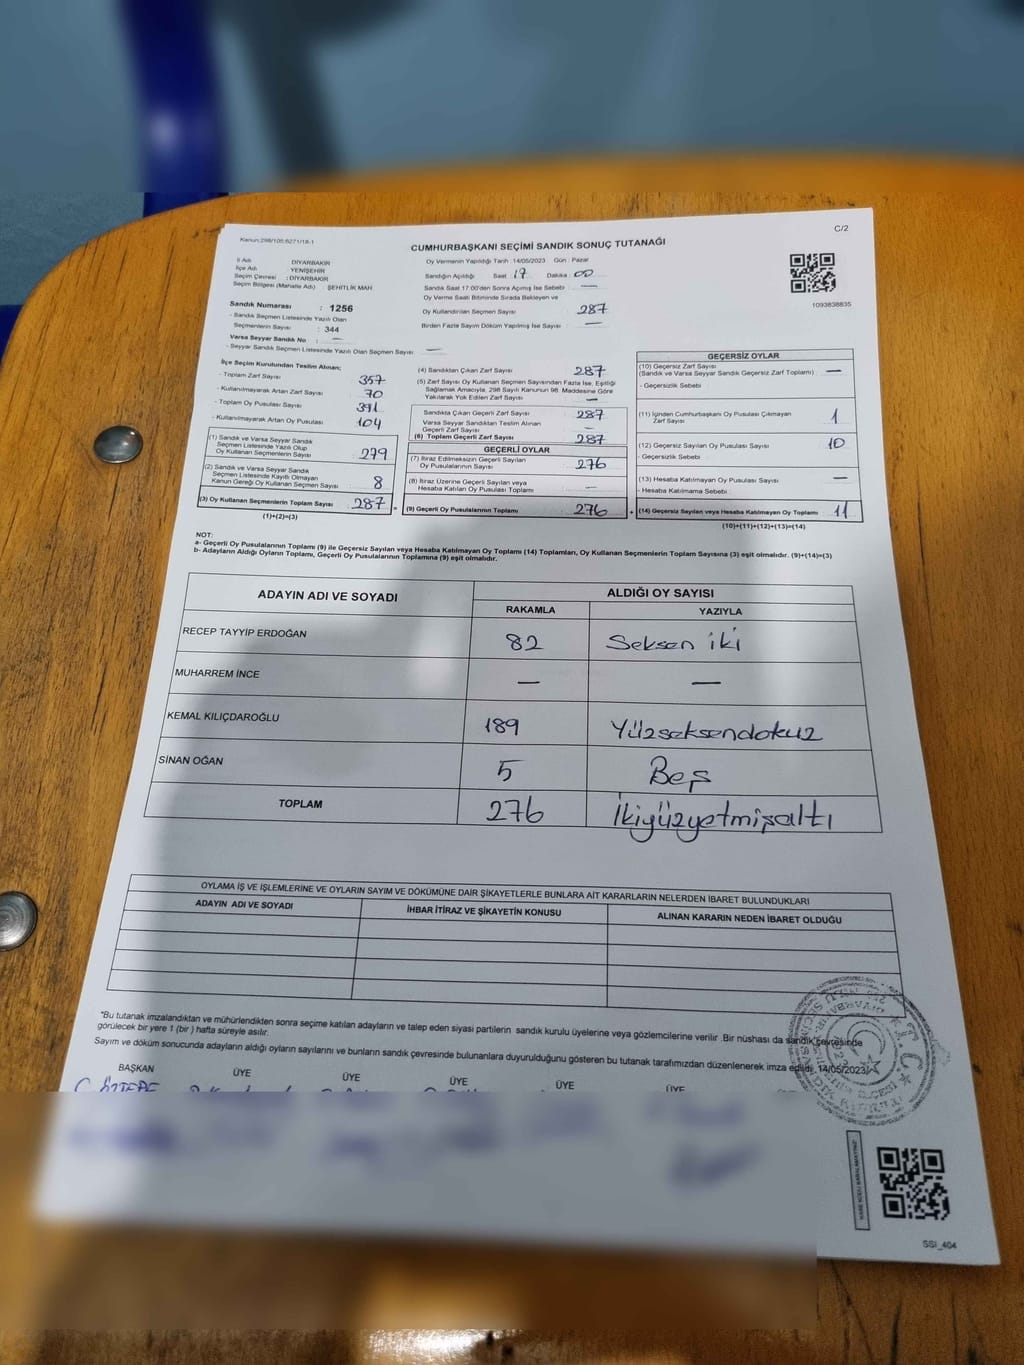 Kanun:298/105,6271/18-1
C/2
CUMHURBAŞKANI SEÇİMİ SANDIK SONUÇ TUTANAĞI
İl Adı : DİYARBAKIR
İlçe Adı : YENİŞEHİR
Seçim Çevresi : DİYARBAKIR
Seçim Bölgesi (Mahalle Adı) : ŞEHİTLİK MAH
Sandık Numarası : 1256
- Sandık Seçmen Listesinde Yazılı Olan
Seçmenlerin Sayısı : 344
Varsa Seyyar Sandık No : —
- Seyyar Sandık Seçmen Listesinde Yazılı Olan Seçmen Sayısı : —
Oy Vermenin Yapıldığı Tarih : 14/05/2023 Gün : Pazar
Sandığın Açıldığı Saat : 17 Dakika : 00
Sandık Saat 17.00'den Sonra Açımış İse Sebebi : —
Oy Verme Saati Bitiminde Sırada Bekleyen ve
Oy Kullandırılan Seçmen Sayısı : 287
Birden Fazla Sayım Döküm Yapılmış İse Sayısı : —
1093838835
İlçe Seçim Kurulundan Teslim Alınan;
- Toplam Zarf Sayısı : 357
- Kullanılmayarak Artan Zarf Sayısı : 70
- Toplam Oy Pusulası Sayısı : 391
- Kullanılmayarak Artan Oy Pusulası : 104
(1) Sandık ve Varsa Seyyar Sandık
Seçmen Listesinde Yazılı Olup
Oy Kullanan Seçmenlerin Sayısı : 279
(2) Sandık ve Varsa Seyyar Sandık
Seçmen Listesinde Kayıtlı Olmayan
Kanun Gereği Oy Kullanan Seçmen Sayısı : 8
(3) Oy Kullanan Seçmenlerin Toplam Sayısı : 287
(1)+(2)=(3)
(4) Sandıktan Çıkan Zarf Sayısı : 287
(5) Zarf Sayısı Oy Kullanan Seçmen Sayısından Fazla İse, Eşitliği
Sağlamak Amacıyla, 298 Sayılı Kanunun 98. Maddesine Göre
Yakılarak Yok Edilen Zarf Sayısı : —
Sandıkta Çıkan Geçerli Zarf Sayısı : 287
Varsa Seyyar Sandıktan Teslim Alınan
Geçerli Zarf Sayısı : —
(6) Toplam Geçerli Zarf Sayısı : 287
GEÇERLİ OYLAR
(7) İtiraz Edilmeksizin Geçerli Sayılan
Oy Pusulalarının Sayısı : 276
(8) İtiraz Üzerine Geçerli Sayılan veya
Hesaba Katılan Oy Pusulası Toplamı : —
= (9) Geçerli Oy Pusulalarının Toplamı : 276
GEÇERSİZ OYLAR
(10) Geçersiz Zarf Sayısı
(Sandık ve Varsa Seyyar Sandık Geçersiz Zarf Toplamı) : —
- Geçersizlik Sebebi
(11) İçinden Cumhurbaşkanı Oy Pusulası Çıkmayan
Zarf Sayısı : 1
(12) Geçersiz Sayılan Oy Pusulası Sayısı : 10
- Geçersizlik Sebebi :
(13) Hesaba Katılmayan Oy Pusulası Sayısı : —
- Hesaba Katılmama Sebebi
+ (14) Geçersiz Sayılan veya Hesaba Katılmayan Oy Toplamı : 11
(10)+(11)+(12)+(13)=(14)
NOT:
a- Geçerli Oy Pusulalarının Toplamı (9) ile Geçersiz Sayılan veya Hesaba Katılmayan Oy Toplamı (14) Toplamları, Oy Kullanan Seçmenlerin Toplam Sayısına (3) eşit olmalıdır. (9)+(14)=(3)
b- Adayların Aldığı Oyların Toplamı, Geçerli Oy Pusulalarının Toplamına (9) eşit olmalıdır.
ADAYIN ADI VE SOYADI ALDIĞI OY SAYISI
RAKAMLA YAZIYLA
RECEP TAYYİP ERDOĞAN 82 Seksen iki
MUHARREM İNCE — —
KEMAL KILIÇDAROĞLU 189 Yüzseksendokuz
SİNAN OĞAN 5 Beş
TOPLAM 276 İkiyüzyetmişaltı
OYLAMA İŞ VE İŞLEMLERİNE VE OYLARIN SAYIM VE DÖKÜMÜNE DAİR ŞİKAYETLERLE BUNLARA AİT KARARLARIN NELERDEN İBARET BULUNDUKLARI
ADAYIN ADI VE SOYADI İHBAR İTİRAZ VE ŞİKAYETİN KONUSU ALINAN KARARIN NEDEN İBARET OLDUĞU
*Bu tutanak imzalandıktan ve mühürlendikten sonra seçime katılan adayların ve talep eden siyasi partilerin sandık kurulu üyelerine veya gözlemcilerine verilir .Bir nüshası da sandık çevresinde
görülecek bir yere 1 (bir ) hafta süreyle asılır.
Sayım ve döküm sonucunda adayların aldığı oyların sayılarını ve bunların sandık çevresinde bulunanlara duyurulduğunu gösteren bu tutanak tarafımızdan düzenlenerek imza edildi. 14/05/2023
BAŞKAN ÜYE ÜYE ÜYE ÜYE ÜYE
SSI_404